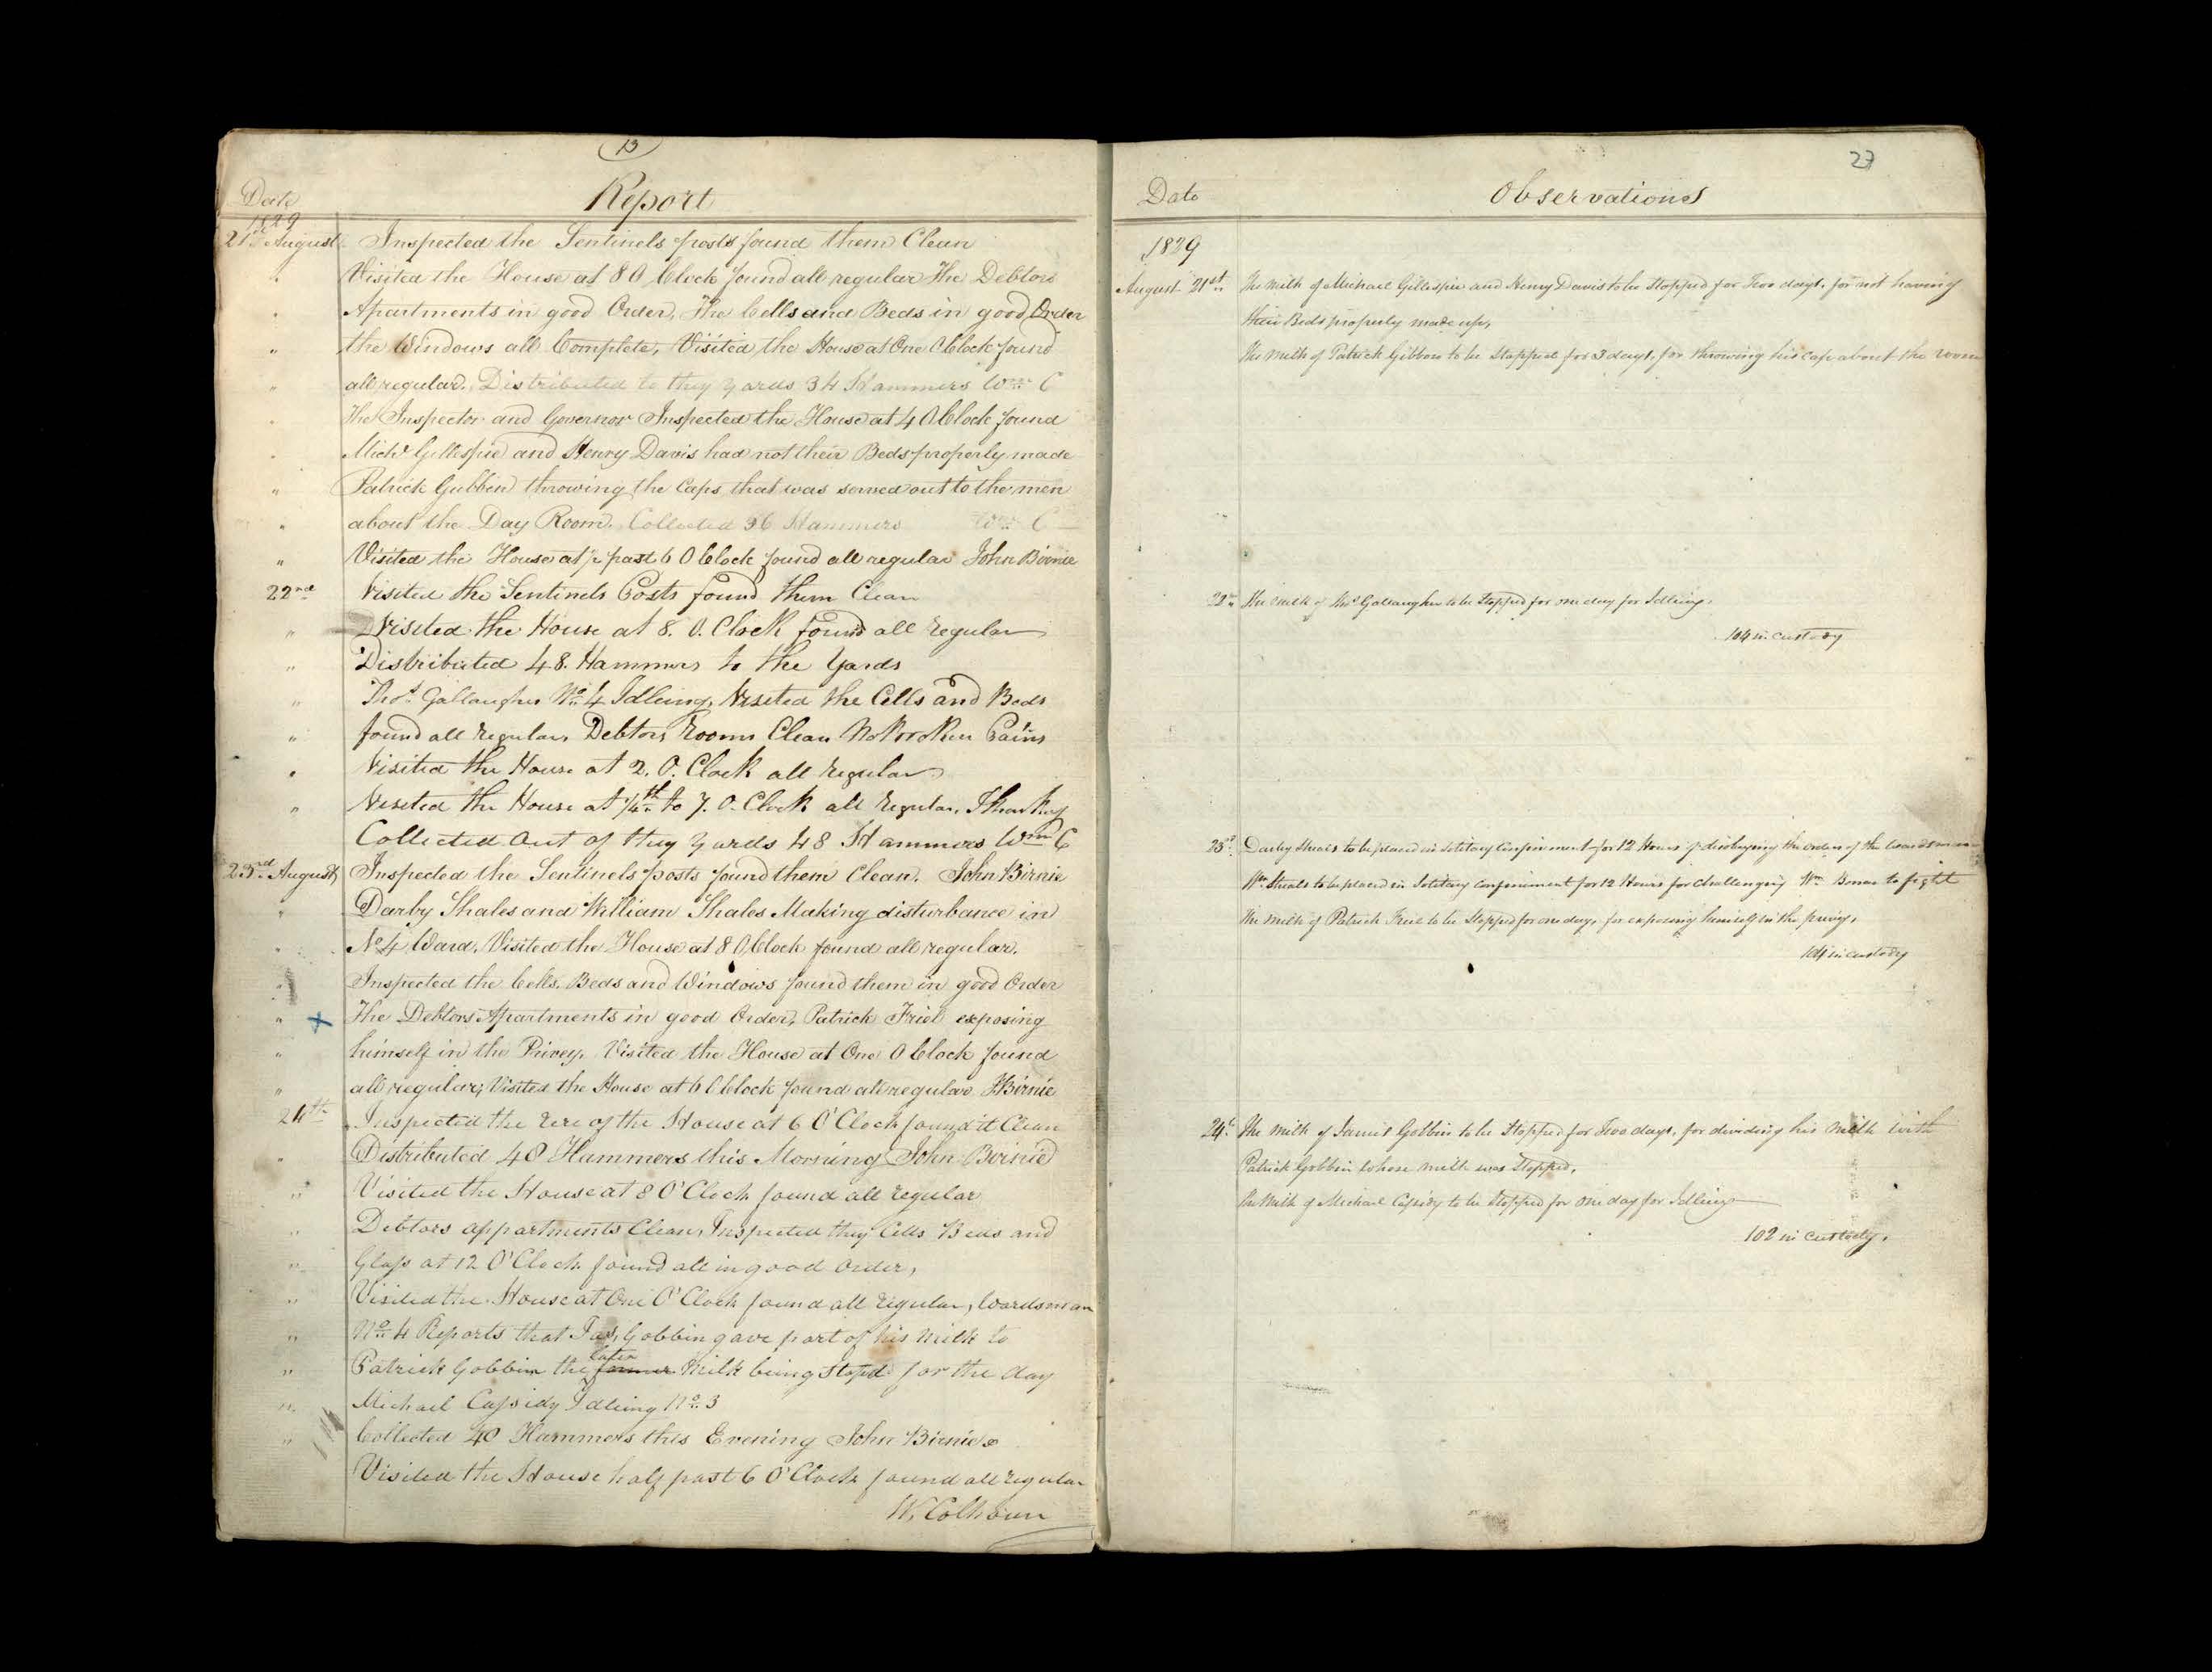 13
Date
Report
1829
21st August Inspected the Sentinels posts found them Clean
" Visited the House at 8 O Clock found all regular The Debtors
" Apartments in good Order, The Cells and Beds in good Order
" the Windows all Complete, Visited the House at One O Clock found
" all regular. Distributed to they yards 34 Hammers Wm C
" The Inspector and Governor Inspected the House at 4 O Clock found
" Michl Gillespie and Henry Davis had not their Beds properly made
" Patrick Gubbin throwing the Caps that was served out to the men
" about the Day Room. Collected 36 Hammers Wm C
" Visited the House at ½ past 6 O Clock found all regular John Birnie
22nd Visited the Sentinels Posts found them Clean
" Visited the House at 8. O. Clock found all regular
" Distributed 48. Hammers to the Yards
" Thos Gallaugher No 4 Idleing, Visited the Cells and Beds
" found all regular, Debtors Rooms Clean No Broken Pains
" Visited the House at 2. O. Clock all regular
" Visited the House at ¼th to 7. O. Clock all regular,
Collected Out of they yards 48 Hammers Wm C
23rd August Inspected the Sentinels posts found them Clean. John Birnie
" Darby Shales and William Shales Making disturbance in
" No 4 Ward. Visited the House at 8 O Clock found all regular.
" Inspected the Cells, Beds and Windows found them in good Order
" x The Debtors Apartments in good Order, Patrick Friel exposing
" himself in the Privey. Visited the House at One O Clock found
" all regular, Visited the House at 6 O Clock found all regular J Birnie
24th Inspected the rere of the House at 6 O'Clock found it Clean
" Distributed 40 Hammers this Morning John Birnie
" Visited the House at 8 O'Clock found all regular
" Debtors appartments Clean, Inspected they Cells Beds and
" Glass at 12 O'Clock found all in good order,
" Visited the House at One O'Clock found all regular, Wardsman
" No 4 Reports that Jas, Gobbin gave part of his milk to
later
" Patrick Gobbin the former Milk being Stopd for the day
" Michael Cassidy Idleing No 3
" Collected 40 Hammers this Evening John Birnie
Visited the House half past 6 O'Clock found all regular
W. Colhoun
27
Date
Observations
1829
August 21st The Milk of Michael Gillespie and Henry Davis to be Stopped for Two days, for not having
their Beds properly made up,
The Milk of Patrick Gibbon to be Stopped for 3 days, for throwing his cap about the room
22nd The Milk of Thos Gallaugher to be Stopped for one day for Idleing,
104 in custody
23rd Darby Sheals to be placed in Solitary Confinement for 12 Hours for disobeying the orders of the wardsman
Wm Sheals to be placed in Solitary confinement for 12 Hours for challenging Wm Bonar to fight
The milk of Patrick Friel to be Stopped for one day, for exposing himself in the privy,
104 in custody
24th The Milk of James Gobbin to be Stopped for Two days, for dividing his Milk with
Patrick Gobbin whose milk was Stopped,
The Milk of Michael Cassidy to be Stopped for one day for Idleing
102 in custody.